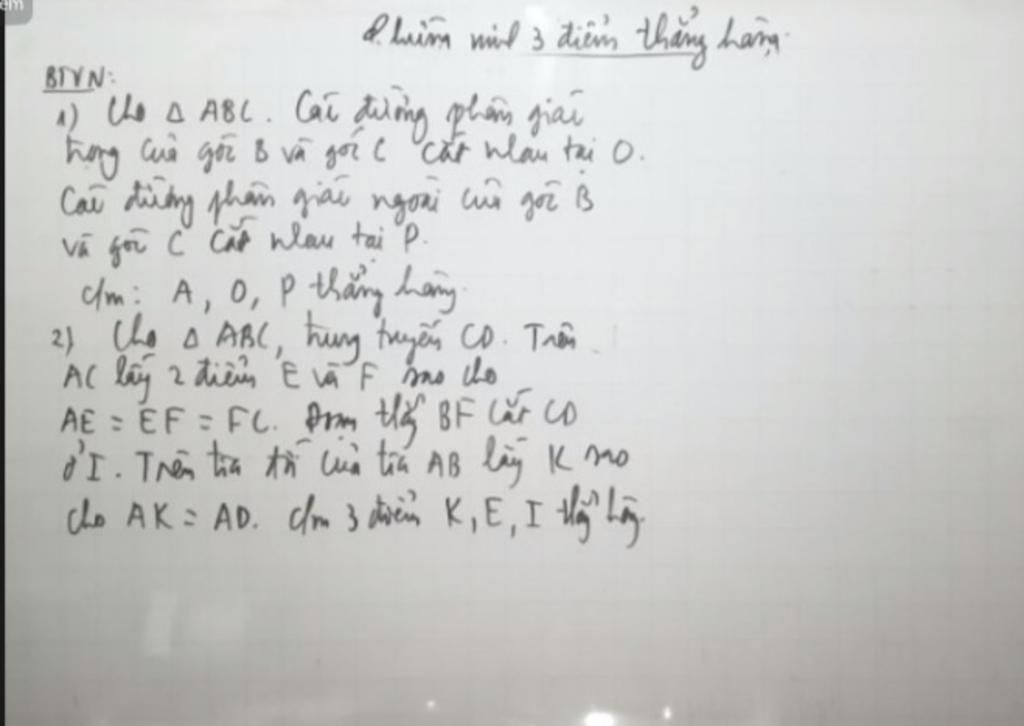 em
Chứng minh 3 điểm thẳng hàng.
BTVN:
1) Cho Δ ABC. Các đường phân giác
trong của góc B và góc C cắt nhau tại O.
Các đường phân giác ngoài của góc B
và góc C cắt nhau tại P.
c/m: A, O, P thẳng hàng.
2) Cho Δ ABC, trung tuyến CD. Trên
AC lấy 2 điểm E và F sao cho
AE = EF = FC. Đoạn thẳg BF cắt CD
ở I. Trên tia đối của tia AB lấy K sao
cho AK = AD. c/m 3 điểm K, E, I thẳg hàng.